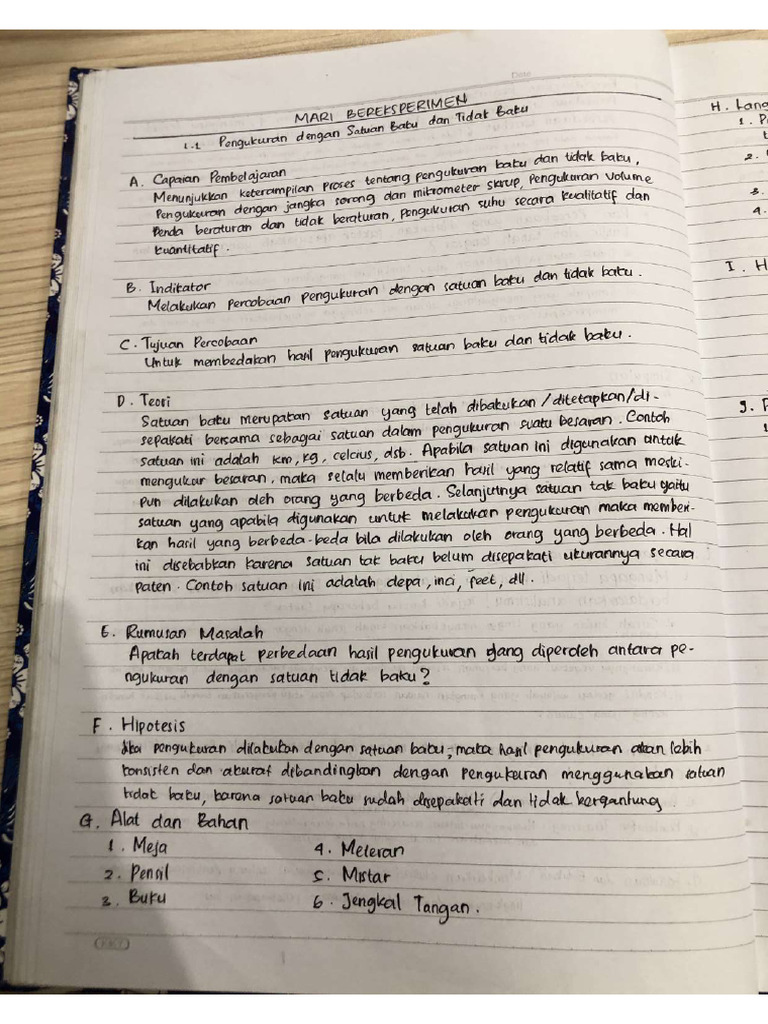 Date
MARI BEREKSPERIMEN
1.1 Pengukuran dengan Satuan Baku dan Tidak Baku
A. Capaian Pembelajaran
Menunjukkan keterampilan proses tentang pengukuran baku dan tidak baku,
Pengukuran dengan jangka sorong dan mikrometer skrup, Pengukuran volume
Benda beraturan dan tidak beraturan, Pengukuran suhu secara kualitatif dan
kuantitatif.
B. Indikator
Melakukan Percobaan Pengukuran dengan satuan baku dan tidak baku.
C. Tujuan Percobaan
Untuk membedakan hasil pengukuran satuan baku dan tidak baku.
D. Teori
Satuan baku merupakan satuan yang telah dibakukan/ditetapkan/di-
sepakati bersama sebagai satuan dalam pengukuran suatu besaran. Contoh
satuan ini adalah km, kg, celcius, dsb. Apabila satuan ini digunakan untuk
mengukur besaran, maka selalu memberikan hasil yang relatif sama meski-
pun dilakukan oleh orang yang berbeda. Selanjutnya satuan tak baku yaitu
satuan yang apabila digunakan untuk melakukan pengukuran maka memberi-
kan hasil yang berbeda-beda bila dilakukan oleh orang yang berbeda. Hal
ini disebabkan karena satuan tak baku belum disepakati ukurannya secara
paten. Contoh satuan ini adalah depa, inci, feet, dll.
E. Rumusan Masalah
Apakah terdapat perbedaan hasil pengukuran yang diperoleh antara pe-
ngukuran dengan satuan tidak baku?
F. Hipotesis
Jika pengukuran dilakukan dengan satuan baku, maka hasil pengukuran akan lebih
konsisten dan akurat dibandingkan dengan pengukuran menggunakan satuan
tidak baku, karena satuan baku sudah disepakati dan tidak bergantung.
G. Alat dan Bahan
1. Meja 4. Meteran
2. Pensil 5. Mistar
3. Buku 6. Jengkal Tangan.
KKY
H. Lang
1. P
2.
3.
4.
I. H
J. P
1.